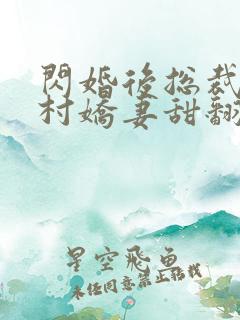 閃婚後總裁
村嬌妻甜翻
星空飛魚
未經同意禁止轉載